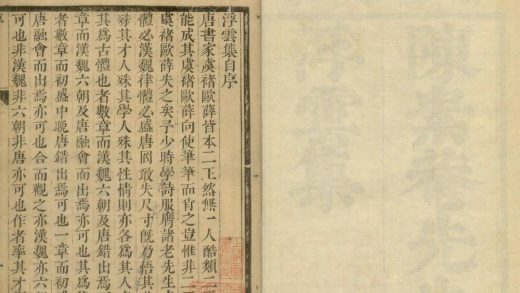 浮雲集自序
唐書家虞褚歐薛皆本二王然無一人酷類二
能成其虞褚歐薛向使筆筆而肖之豈惟非二
虞褚歐薛失之矣予少時學詩服膺諸老先生
體必漢魏律體必盛唐罔敢失尺寸既乃悟其
殊其才人殊其學人殊其性情則亦各為其人
其為古體也者數章而漢魏六朝及唐錯出焉
章而漢魏六朝及唐融會而出焉亦可也其為
者數章而初盛中晚唐錯出焉可也一章而初
唐融會而出焉亦可也合而觀之亦漢魏亦六
可也非漢魏非六朝非唐亦可也作者率其才